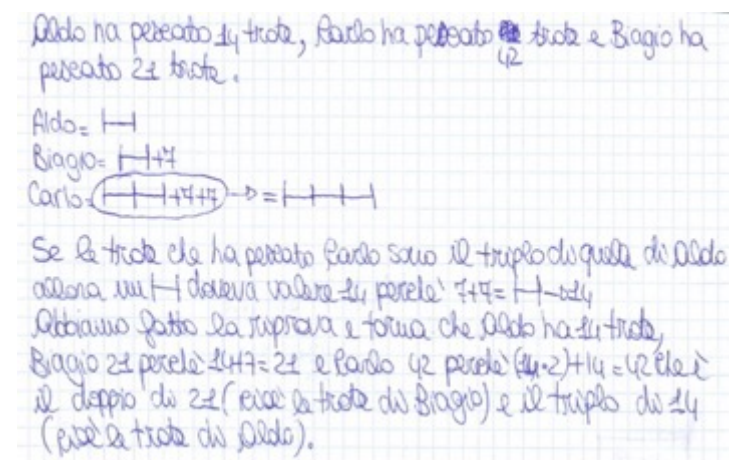 Aldo ha pescato 14 trote, Carlo ha pescato trote e Biagio ha
42
pescato 21 trote.
Aldo= |—|
Biagio= |—|+7
Carlo= |—|—|+7+7 -> = |—|—|—|
Se le trote che ha pescato Carlo sono il triplo di quelle di Aldo
allora un |—| doveva valere 14 perché 7+7= |—| -> 14
Abbiamo fatto la riprova e torna che Aldo ha 14 trote,
Biagio 21 perchè 14+7=21 e Carlo 42 perchè (14·2)+14=42 che è
il doppio di 21 (cioè le trote di Biagio) e il triplo di 14
(cioè le trote di Aldo).